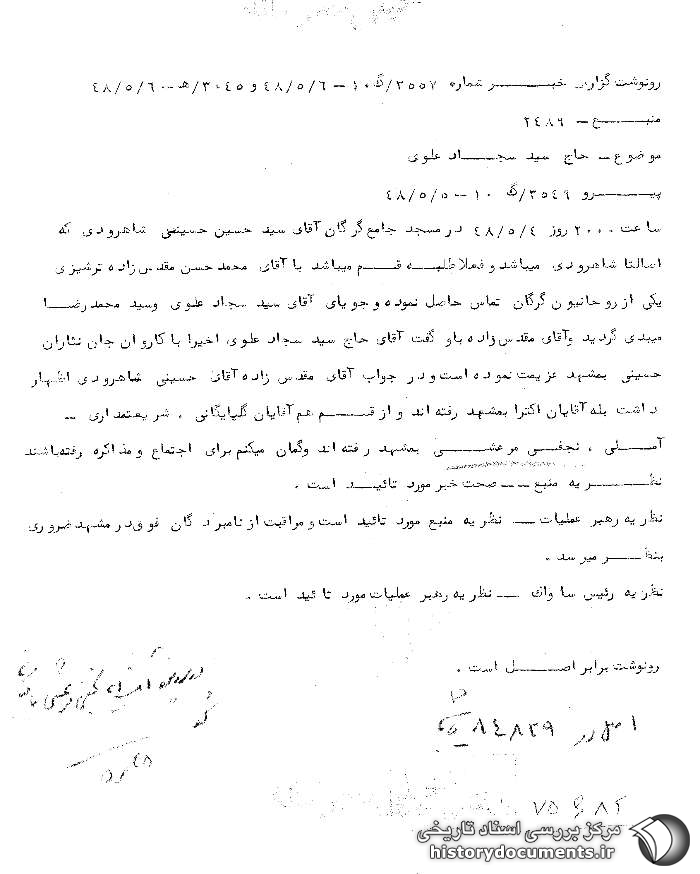 رونوشت گزارش خبر شماره ۳۵۵۷/گ ۱۰ – ۴۸/۵/۶ و ۳۰۴۵/هـ – ۴۸/۵/۶
منبع – ۲۴۸۶
موضوع – حاج سید سجاد علوی
پیرو ۳۵۴۹/گ ۱۰ – ۴۸/۵/۵
ساعت ۲۰۰۰ روز ۴۸/۵/۴ در مسجد جامع گرگان آقای سید حسین حسینی شاهرودی که
اصالتا شاهرودی میباشد و فعلا طلبه قم میباشد با آقای محمد حسن مقدس زاده ترشیزی
یکی از روحانیون گرگان تماس حاصل نموده و جویای آقای سید سجاد علوی وسید محمد رضا
میبدی گردید وآقای مقدس زاده باو گفت آقای حاج سید سجاد علوی اخیرا با کاروان جان نثاران
حسینی بمشهد عزیمت نموده است و در جواب آقای مقدس زاده آقای حسینی شاهرودی اظهار
داشت بله آقایان اکثرا بمشهد رفته اند و از قم هم آقایان گلپایگانی ، شریعتمداری –
آملی ، نجفی مرعشی بمشهد رفته اند وگمان میکنم برای اجتماع و مذاکره رفته باشند
نظریه منبع – صحت خبر مورد تائید است .
نظریه رهبر عملیات – نظریه منبع مورد تائید است و مراقبت از نامبردگان فوق در مشهد ضروری
بنظر میرسد .
نظریه رئیس ساواک – نظریه رهبر عملیات مورد تائید است .
رونوشت برابر اصل است .
اصل در ۸۴۸۲۹
مرکز بررسی اسناد تاریخی
historydocuments.ir